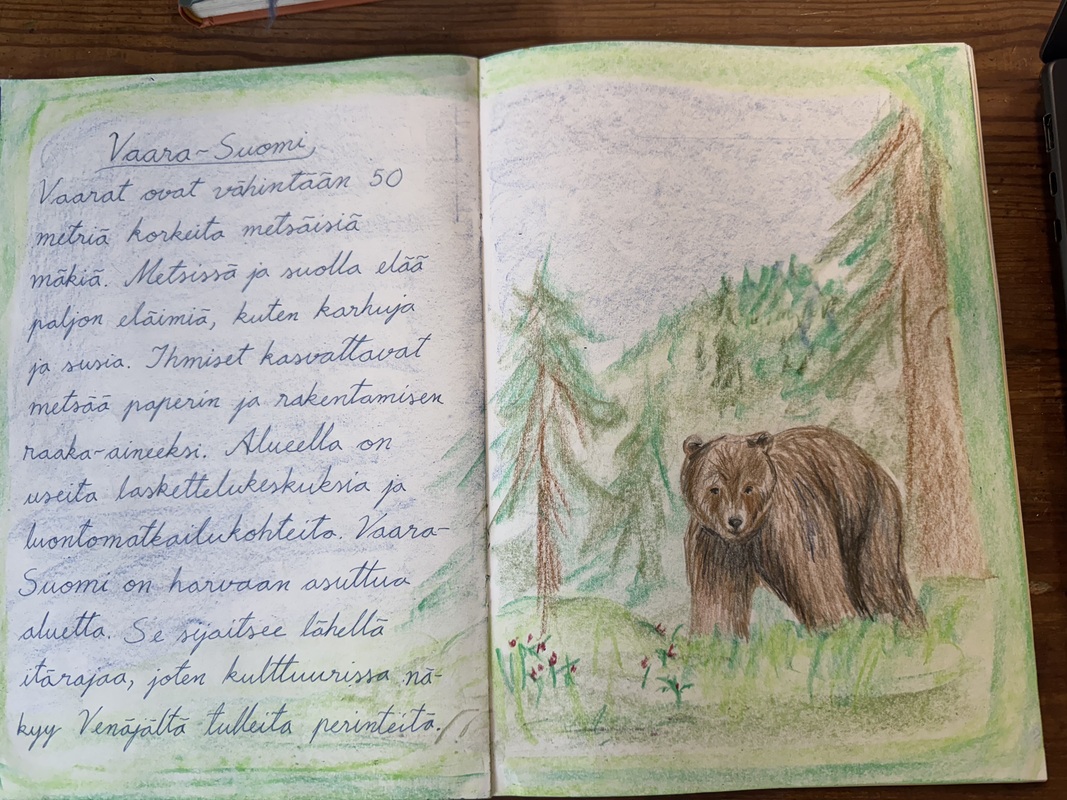 Vaara-Suomi
Vaarat ovat vähintään 50
metriä korkeita metsäisiä
mäkiä. Metsissä ja suolla elää
paljon eläimiä, kuten karhuja
ja susia. Ihmiset kasvattavat
metsää paperin ja rakentamisen
raaka-aineeksi. Alueella on
useita laskettelukeskuksia ja
luontomatkailukohteita. Vaara-
Suomi on harvaan asuttua
aluetta. Se sijaitsee lähellä
itärajaa, joten kulttuurissa nä-
kyy Venäjältä tulleita perinteitä.